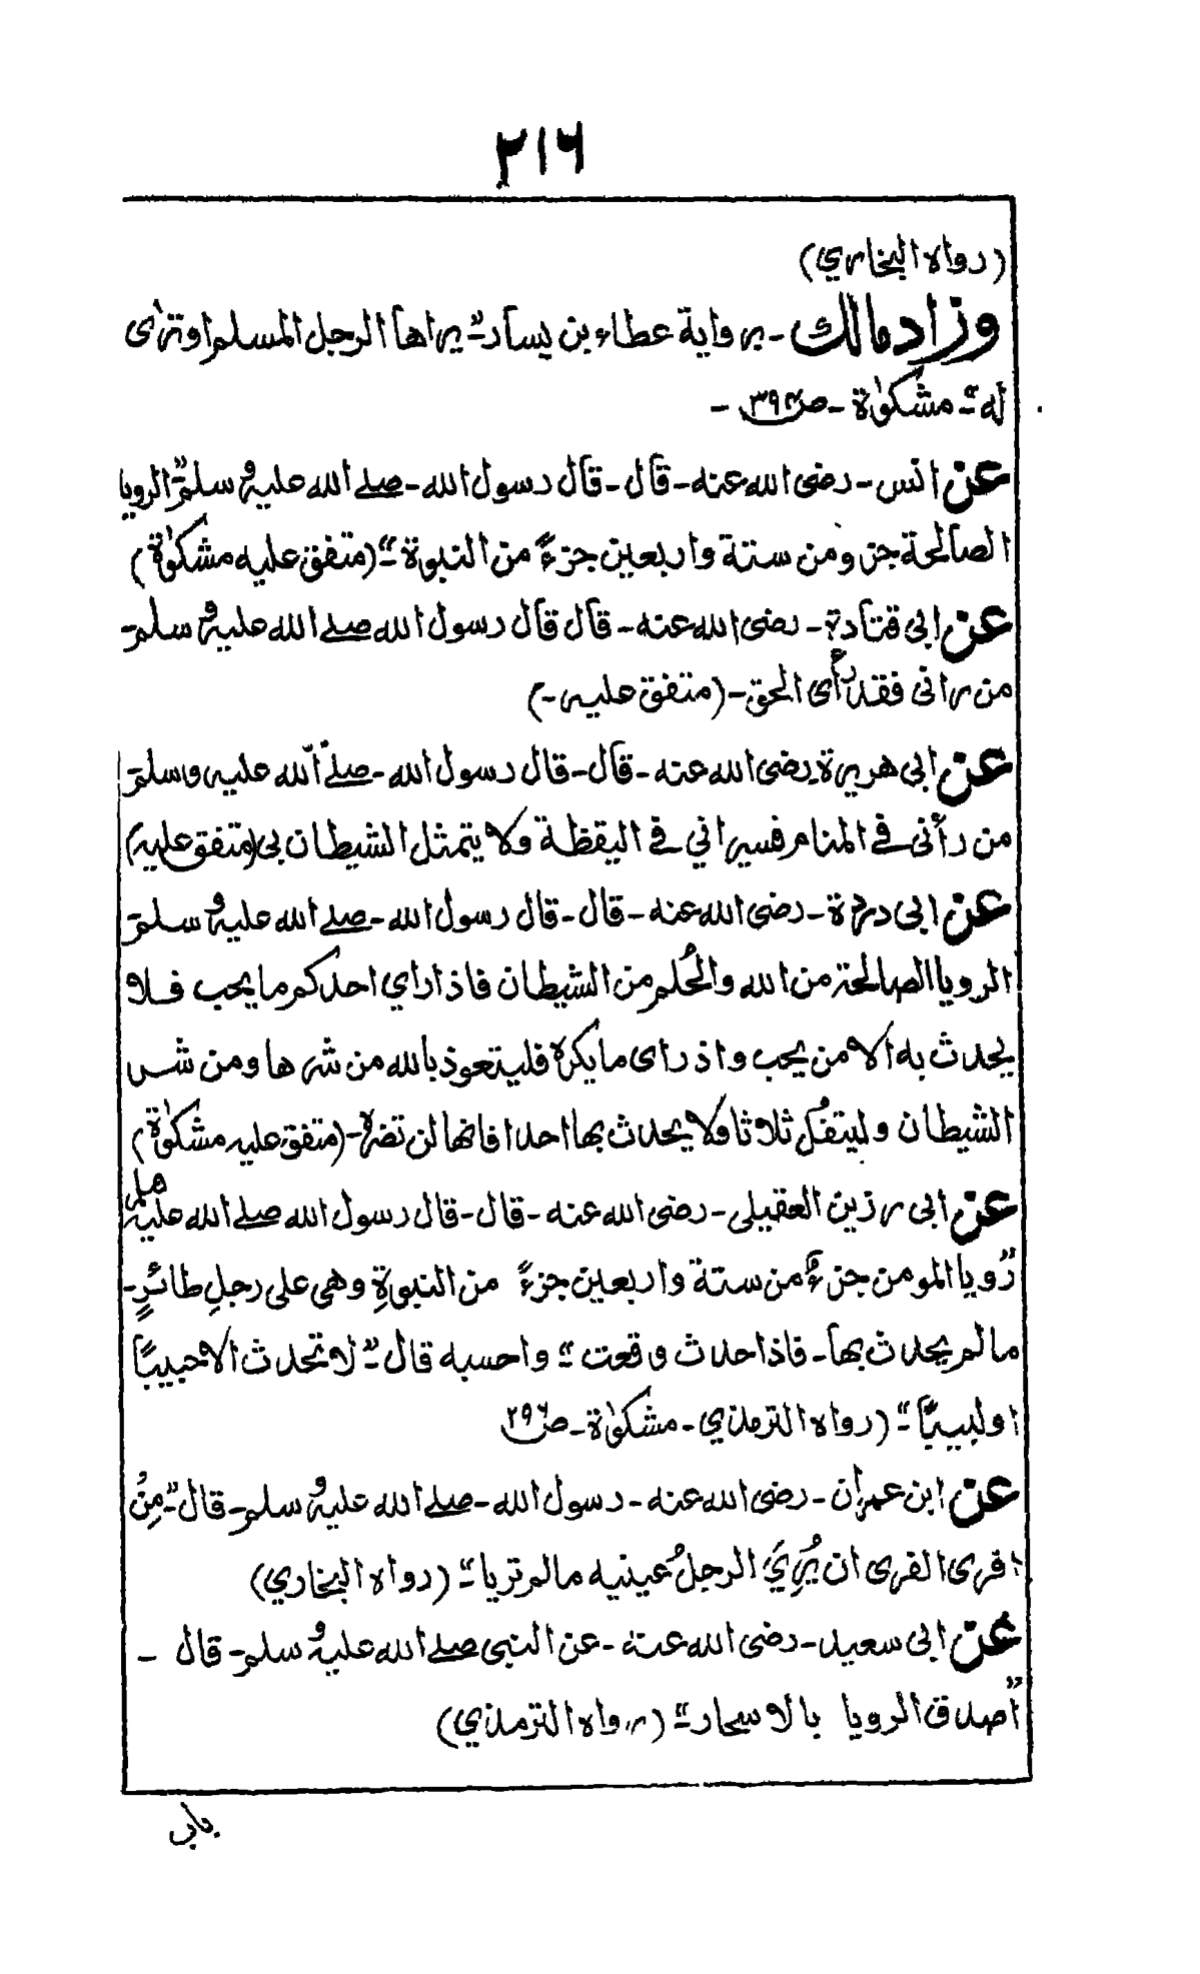 ۲۱۶
(رواه البخاري)
وزاد مالك - برواية عطاء بن يسار "يراها الرجل المسلم او ترٰى
له" - مشكوٰة - ص ۳۹۴ -
عن انس - رضى الله عنه - قال - قال رسول الله - صلے الله عليه وسلم "الرويا
الصالحة جزو من ستة واربعين جزءً من النبوة" - (متفق عليه مشكوٰة)
عن ابى قتادة - رضى الله عنه - قال قال رسول الله صلے الله عليه وسلم -
من رانى فقد رأى الحق - (متفق عليه -)
عن ابى هريرة رضى الله عنه - قال - قال رسول الله - صلے الله عليه وسلم
من رأنى فى المنام فسيراني فى اليقظة ولا يتمثل الشيطان بى (متفق عليه)
عن ابى دردة - رضى الله عنه - قال - قال رسول الله - صلے الله عليه وسلم
الرويا الصالحة من الله والحُلم من الشيطان فاذا راي احدكم ما يحب فلا
يحدث به الا من يحب واذ راى ما يكره فليتعوذ بالله من شرها ومن شر
الشيطان وليتفُل ثلاثا ولا يحدث بها احدا فانها لن تضره - (متفق عليه مشكوٰة)
عن ابى رزين العقيلى - رضى الله عنه - قال - قال رسول الله صلے الله عليه وسلم
رُويا المومن جزءٌ من ستة واربعين جزءً من النبوةِ وهى على رجلِ طائرٍ -
ما لم يحدث بها - فاذا حدث وقعت" - واحسبه قال - "لا تحدث الا حبيبًا
او لبيبًا" - (رواه الترمذي - مشكوٰة - ص ۲۹۶
عن ابن عمران - رضى الله عنه - رسول الله - صلے الله عليه وسلم - قال - "مِنُ
افرى الفرى ان يُرِيَ الرجلُ عينيه ما لم تريا" - (رواه البخاري)
عن ابى سعيد - رضى الله عنه - عن النبى صلے الله عليه وسلم - قال -
"اصدق الرويا بالاسحار" - (رواه الترمذي)
باب